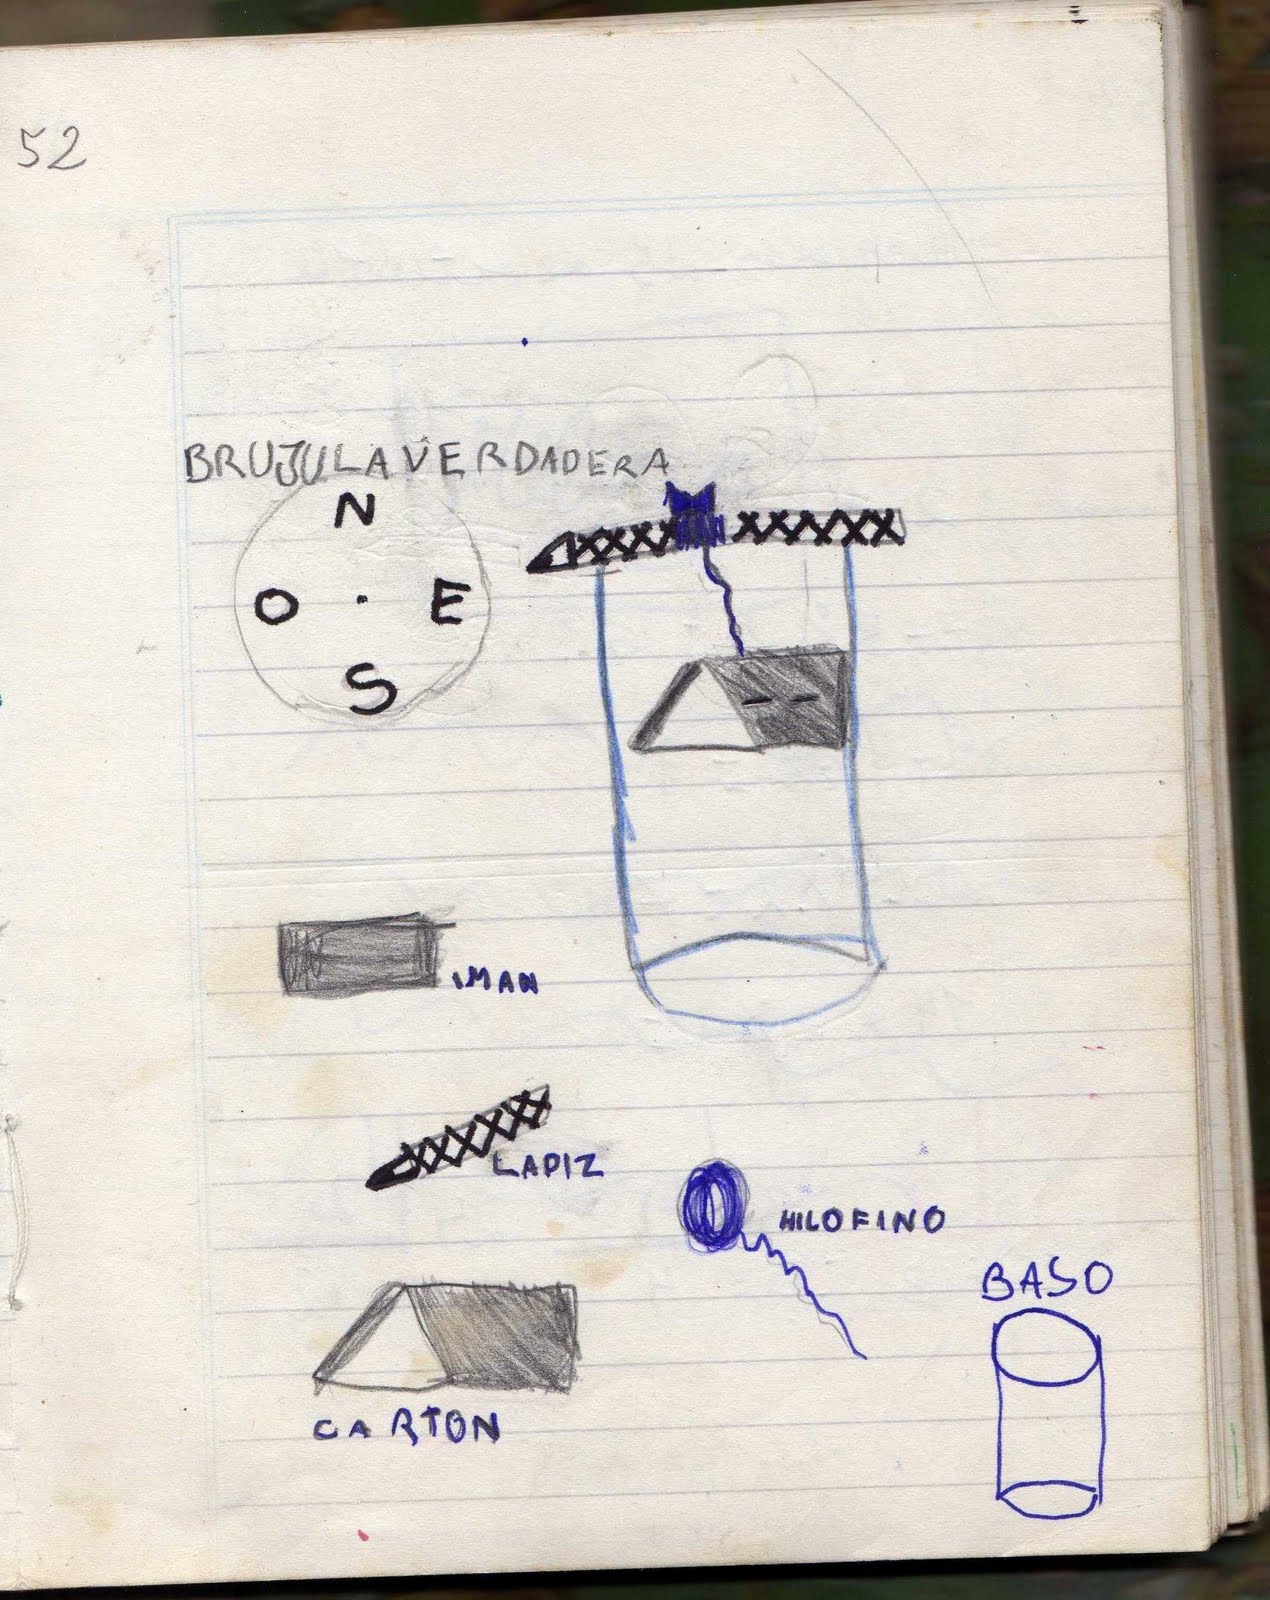 52
BRUJULA VERDADERA
N
O E
S
IMAN
LAPIZ
HILO FINO
BASO
CARTON